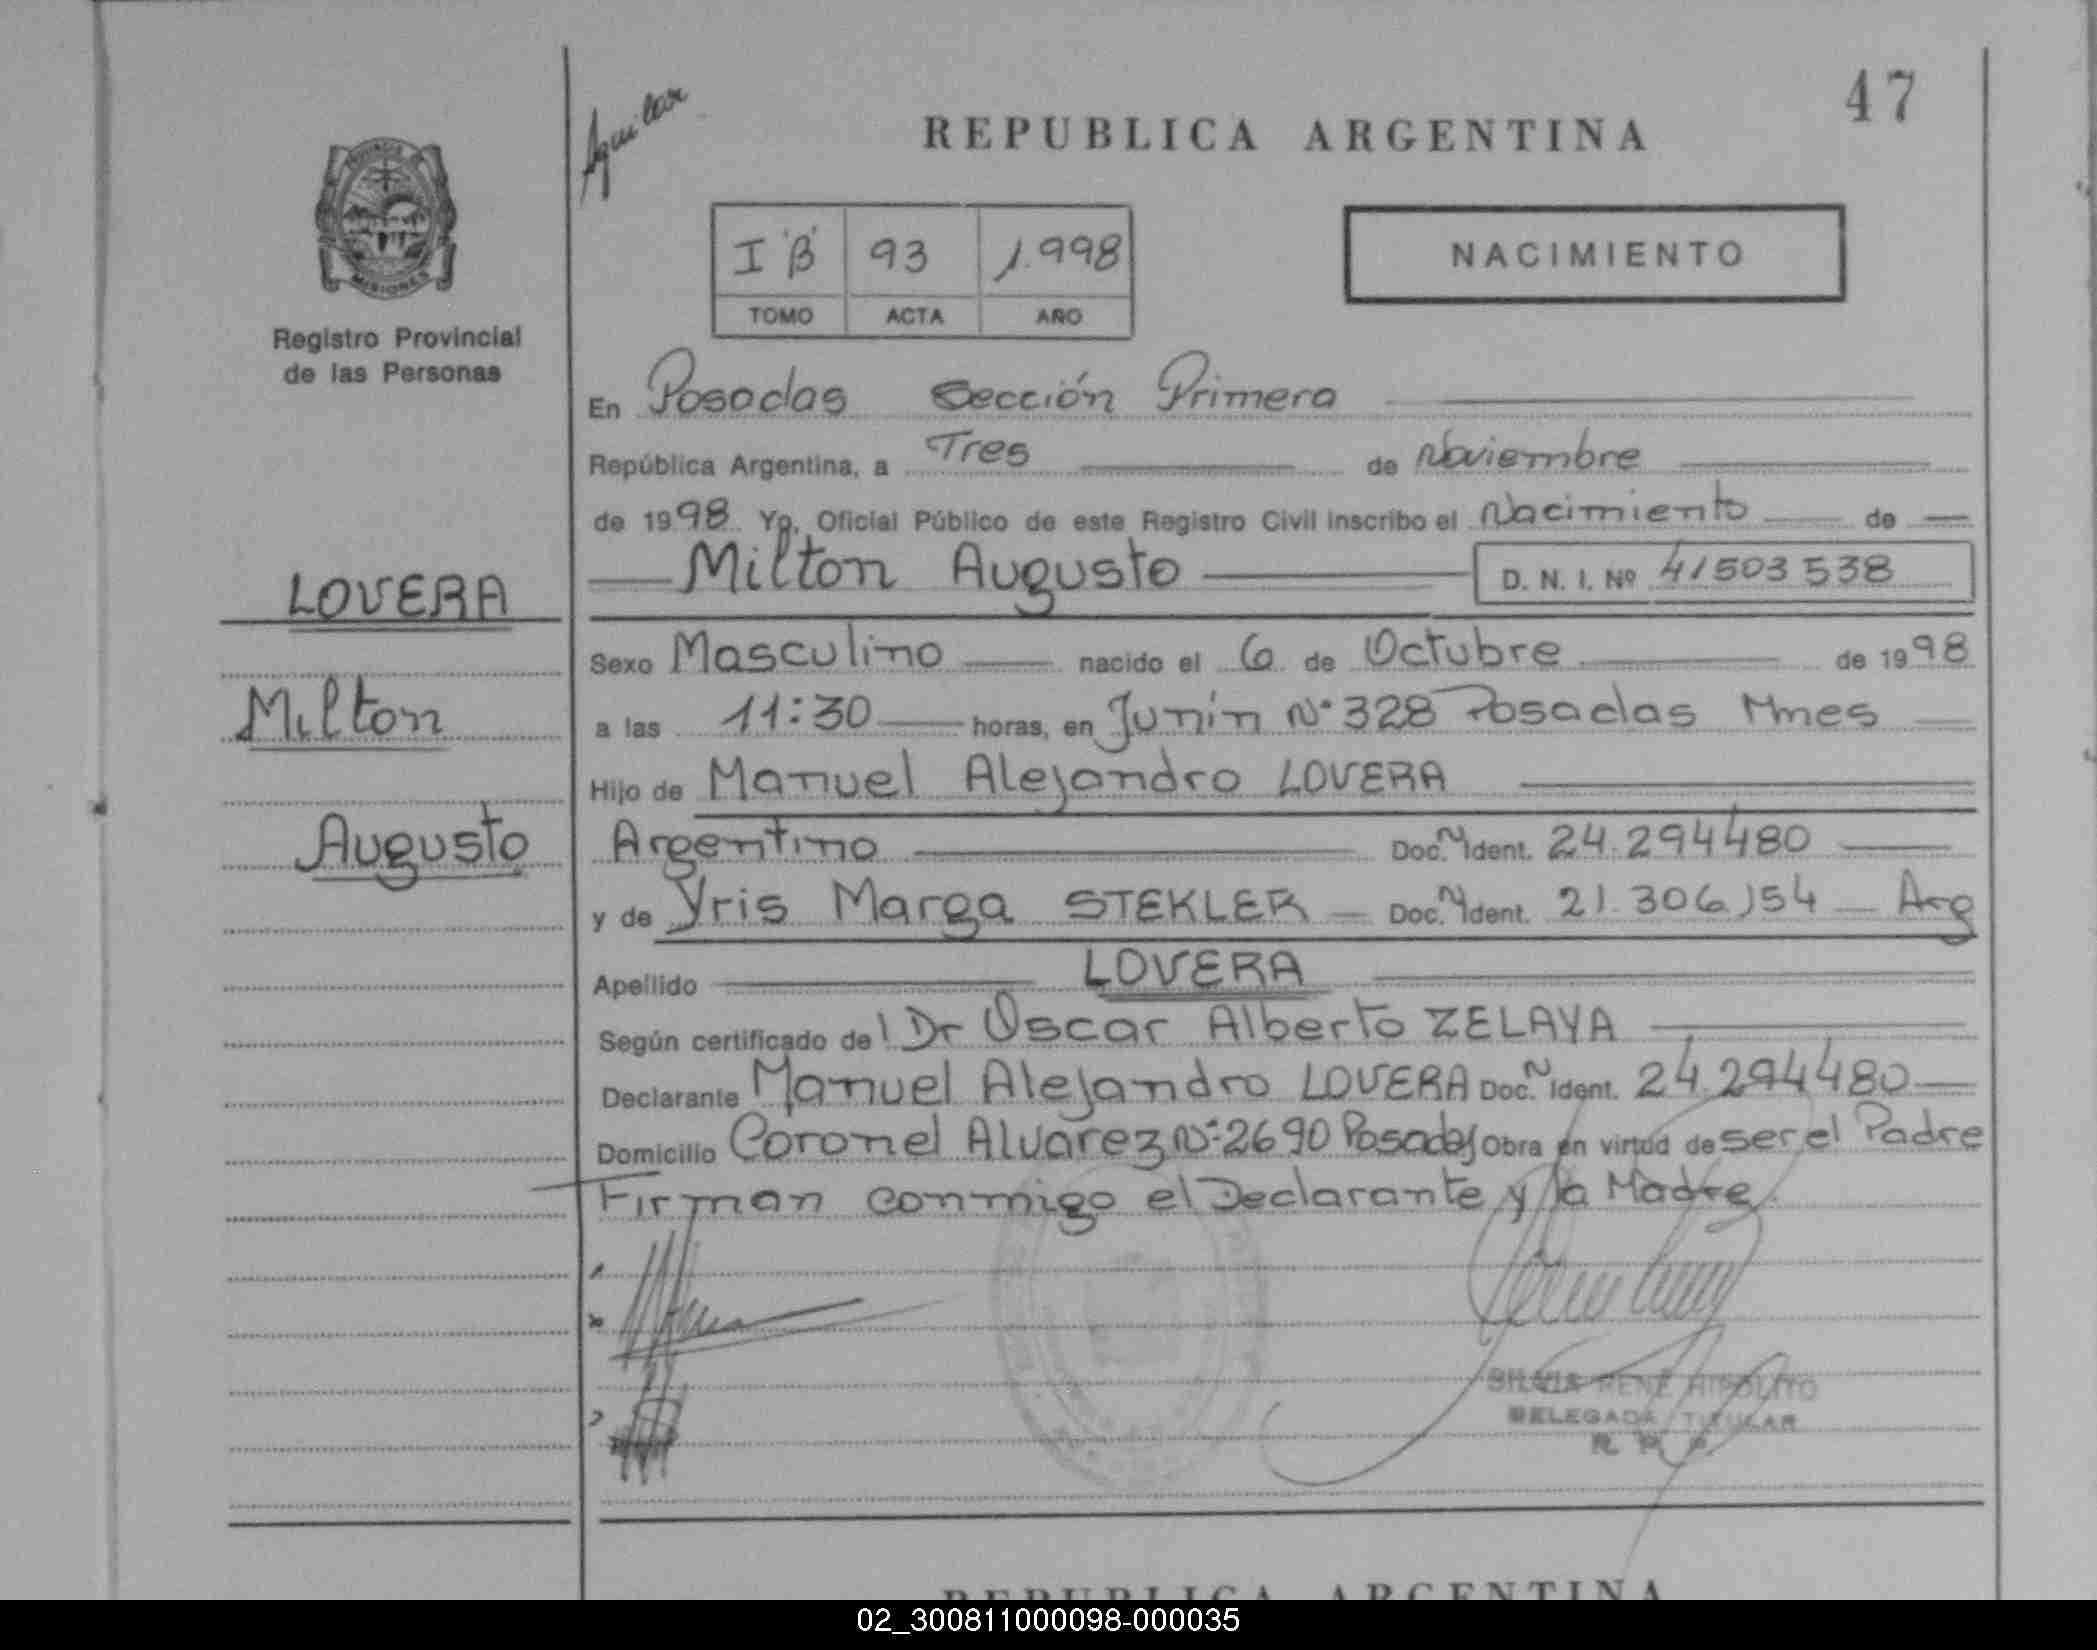 47
Aguilar
REPUBLICA ARGENTINA
PROVINCIA DE
MISIONES
Registro Provincial
de las Personas
I "B" 93 1.998
TOMO ACTA AÑO
NACIMIENTO
En Posadas Sección Primera
República Argentina, a Tres de Noviembre
de 1998 Yo, Oficial Público de este Registro Civil inscribo el Nacimiento de
LOVERA
Milton Augusto D. N. I. Nº 41503538
Sexo Masculino nacido el 6 de Octubre de 1998
Milton
a las 11:30 horas, en Junín Nº 328 Posadas Mnes
Hijo de Manuel Alejandro LOVERA
Augusto
Argentino Doc. N Ident. 24.294480
y de Yris Marga STEKLER Doc. N Ident. 21.306.154 Arg
Apellido LOVERA
Según certificado del Dr Oscar Alberto ZELAYA
Declarante Manuel Alejandro LOVERA Doc. N Ident. 24.294480
Domicilio Coronel Alvarez Nº 2690 Posadas Obra en virtud de ser el Padre
Firman conmigo el Declarante y la Madre.
SILVIA RENE HIPOLITO
DELEGADA TITULAR
R. P. P.
REPUBLICA ARGENTINA
02_300811000098-000035